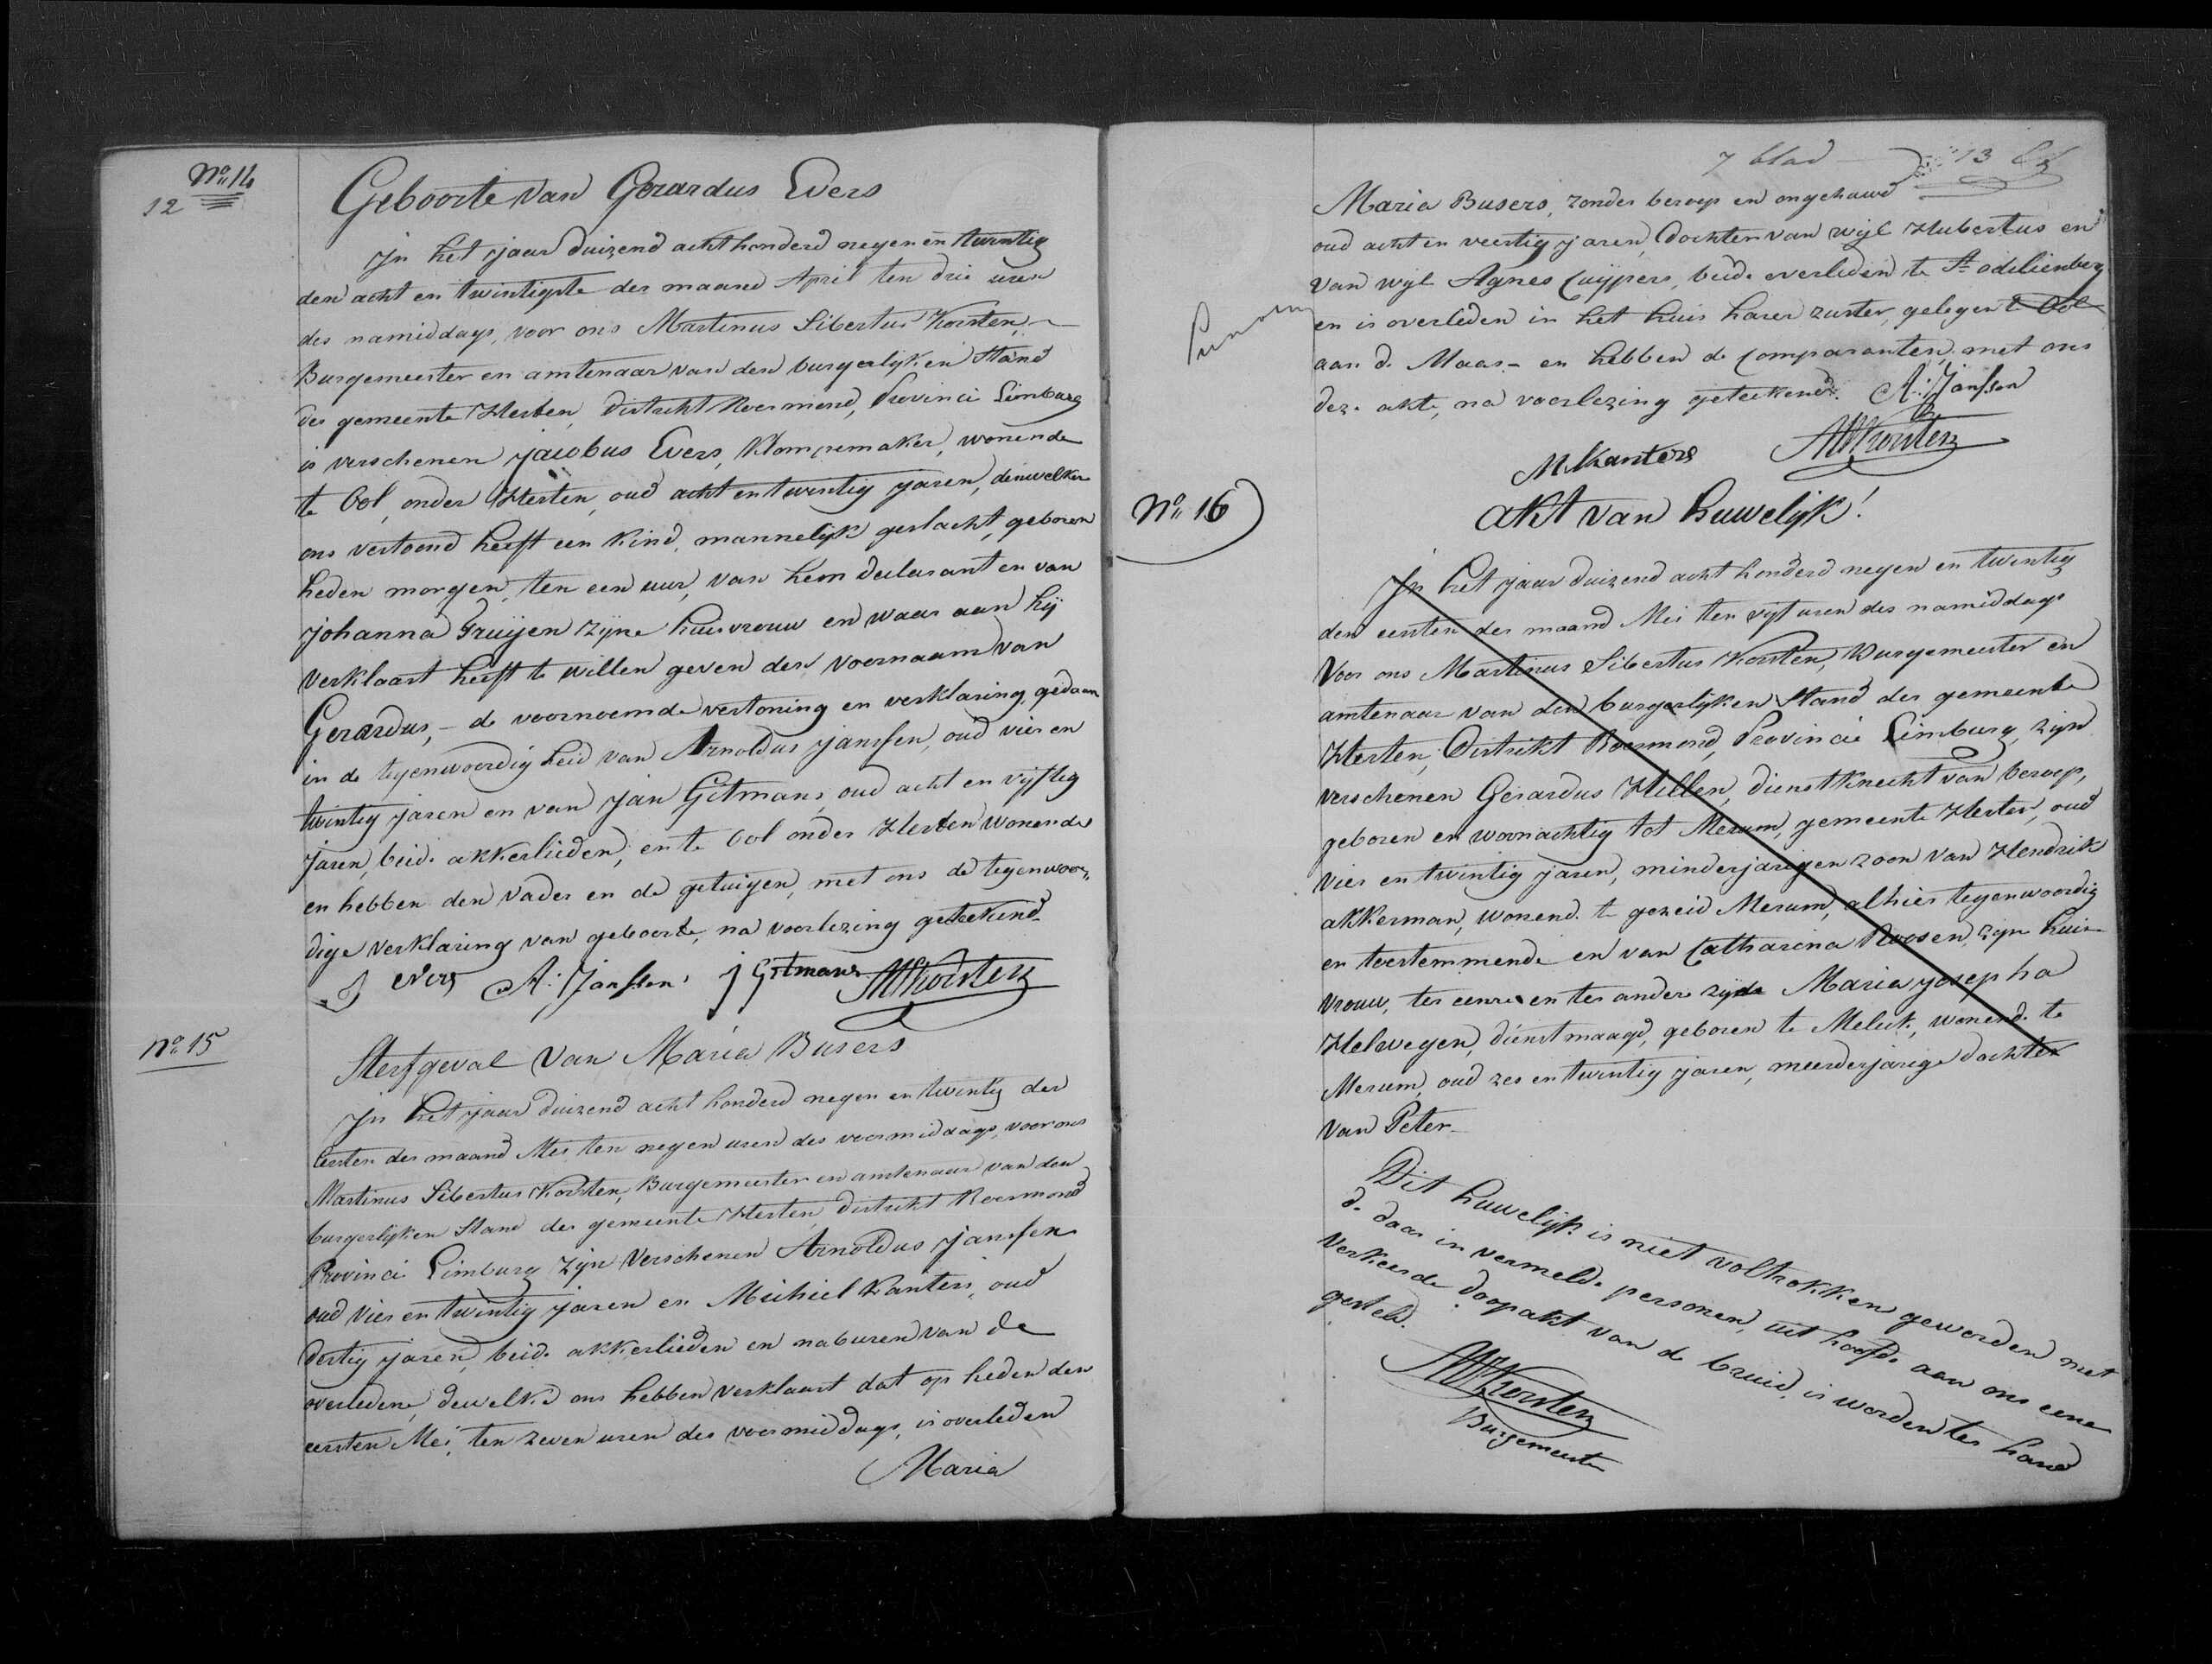 No 14
12
Geboorte van Gerardus Evers
In het jaar duizend acht honderd negen en twintig
den acht en twintigste der maand April ten drie uren
des namiddags, voor ons Martinus Sibertus Korsten,
Burgemeester en amtenaar van den burgerlyken Stand
der gemeente Herten, distrikt Roermond, Provincie Limburg
is verschenen Jacobus Evers, Klompemaker, wonende
te Ool, onder Herten, oud acht en twintig jaren, denwelken
ons vertoond heeft een Kind, mannelyk geslacht, geboren
heden morgen, ten een uur, van hem declarant en van
Johanna Truijen zyne huisvrouw en waar aan hij
verklaart heeft te willen geven den voornaam van
Gerardus, - de voornoemde vertoning en verklaring, gedaan
in de tegenwoordigheid van Arnoldus Janssen, oud vier en
twintig jaren en van Jan Gitmans, oud acht en vyftig
jaren, beide akkerlieden, en te Ool onder Herten wonende
en hebben den vader en de getuigen, met ons de tegenwoor„
dige verklaring van geboorte, na voorlezing geteekend
J Evers A: Janssen J Gitmans MSKorsten
No 15
Sterfgeval van Maria Busers
In het jaar duizend acht honderd negen en twintig den
eersten der maand Mei ten negen uren des voormiddags, voor ons
Martinus Sibertus Korsten, Burgemeester en amtenaar van den
burgerlyken Stand der gemeente Herten, distrikt Roermond
Provincie Limburg zyn verschenen Arnoldus Janssen
oud vier en twintig jaren en Michiel Kanters, oud
dertig jaren, beide akkerlieden en naburen van de
overledene, dewelke ons hebben verklaart dat op heden den
eersten Mei, ten zeven uren des voormiddags, is overleden
Maria
7 blad 13
Maria Busers, zonder beroep en ongehuwd
oud acht en veertig jaren, dochter van wyl Hubertus en
van wyl Agnes Cuijpers, beide overleden te St. odelienberg
en is overleden in het huis harer zuster, gelegen te Ool
aan de Maas - en hebben de comparanten met ons
deze akte, na voorlezing geteekend. A: Janssen
M. Kanters MSKorsten
No 16
akt van huwelyk!
In het jaar duizend acht honderd negen en twintig
den eersten der maand Mei ten vyf uren des namiddags
voor ons Martinus Sibertus Korsten, Burgemeester en
amtenaar van den burgerlyken Stand der gemeente
Herten, Distrikt Roermond, Provincie Limburg, zyn
verschenen Gerardus Hillen, dienstknecht van beroep,
geboren en woonachtig tot Merum, gemeente Herten, oud
vier en twintig jaren, minderjarigen zoon van Hendrik
akkerman, wonende te gezeid Merum, alhier tegenwoordig
en toestemmende en van Catharina Roosen, zyn huis
vrouw, ter eenre en ter andere zyde Maria Josepha
Helwegen, dienstmaagd, geboren te Melick, wonende te
Merum, oud zes en twintig jaren, meerderjarige dochter
van Peter
Dit huwelyk is niet voltrokken geworden met
de daar in vermelde personen, uit hoofde aan ons eene
verkeerde doopakt van de bruid, is worden ter hand
gesteld.
MSKorsten
Burgemeester